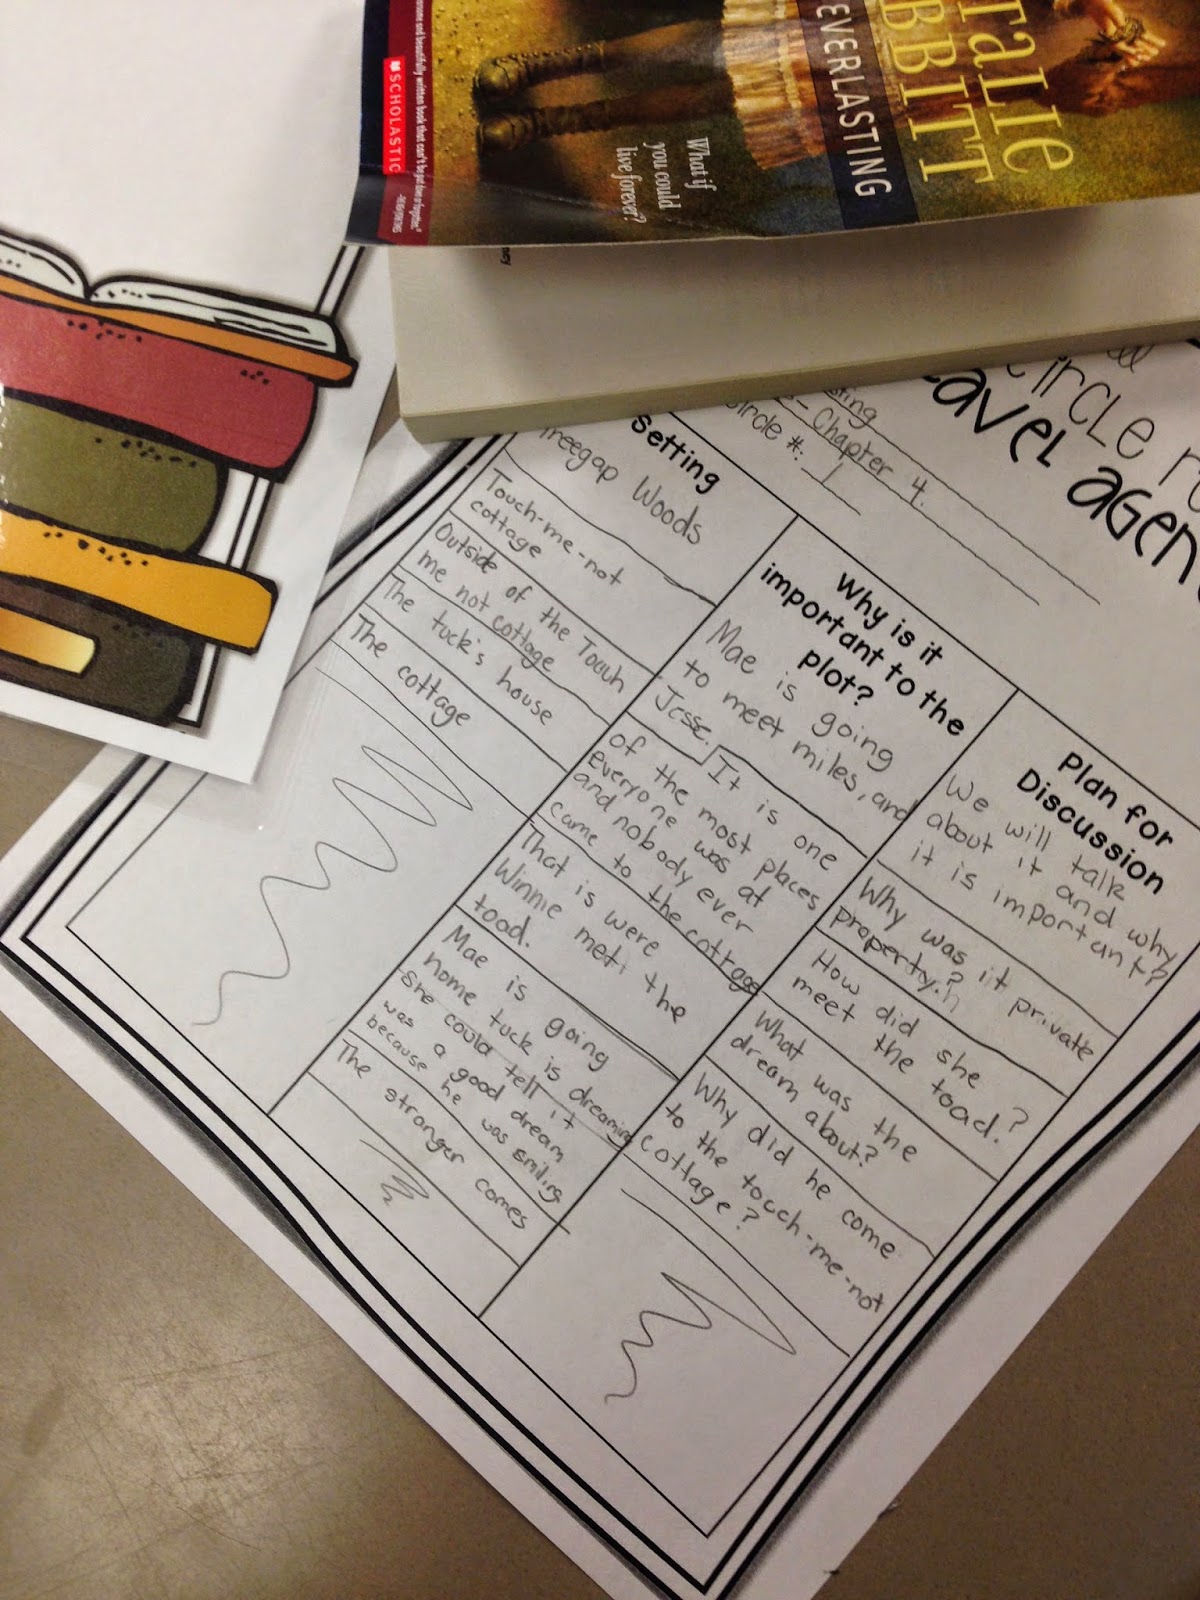 SCHOLASTIC
What if
you could
live forever?
EVERLASTING
BBITT
Chapter 4.
circle #: 1
Setting
Treegap Woods
Touch-me-not
cottage
Outside of the Touch
me not cottage
The tuck's house
The cottage
Why is it
important to the
plot?
Mae is going
to meet miles, and
Jesse.
It is one
of the most places
everyone was at
and nobody ever
came to the cottage
That is were
Winnie met the
toad.
Mae is going
home tuck is dreaming
she could tell it
was a good dream
because he was smiling
The stranger comes
Plan for
Discussion
We will talk
about it and why
it is important?
Why was it private
property?
How did she
meet the toad.?
What was the
dream about?
Why did he come
to the touch-me-not
cottage?